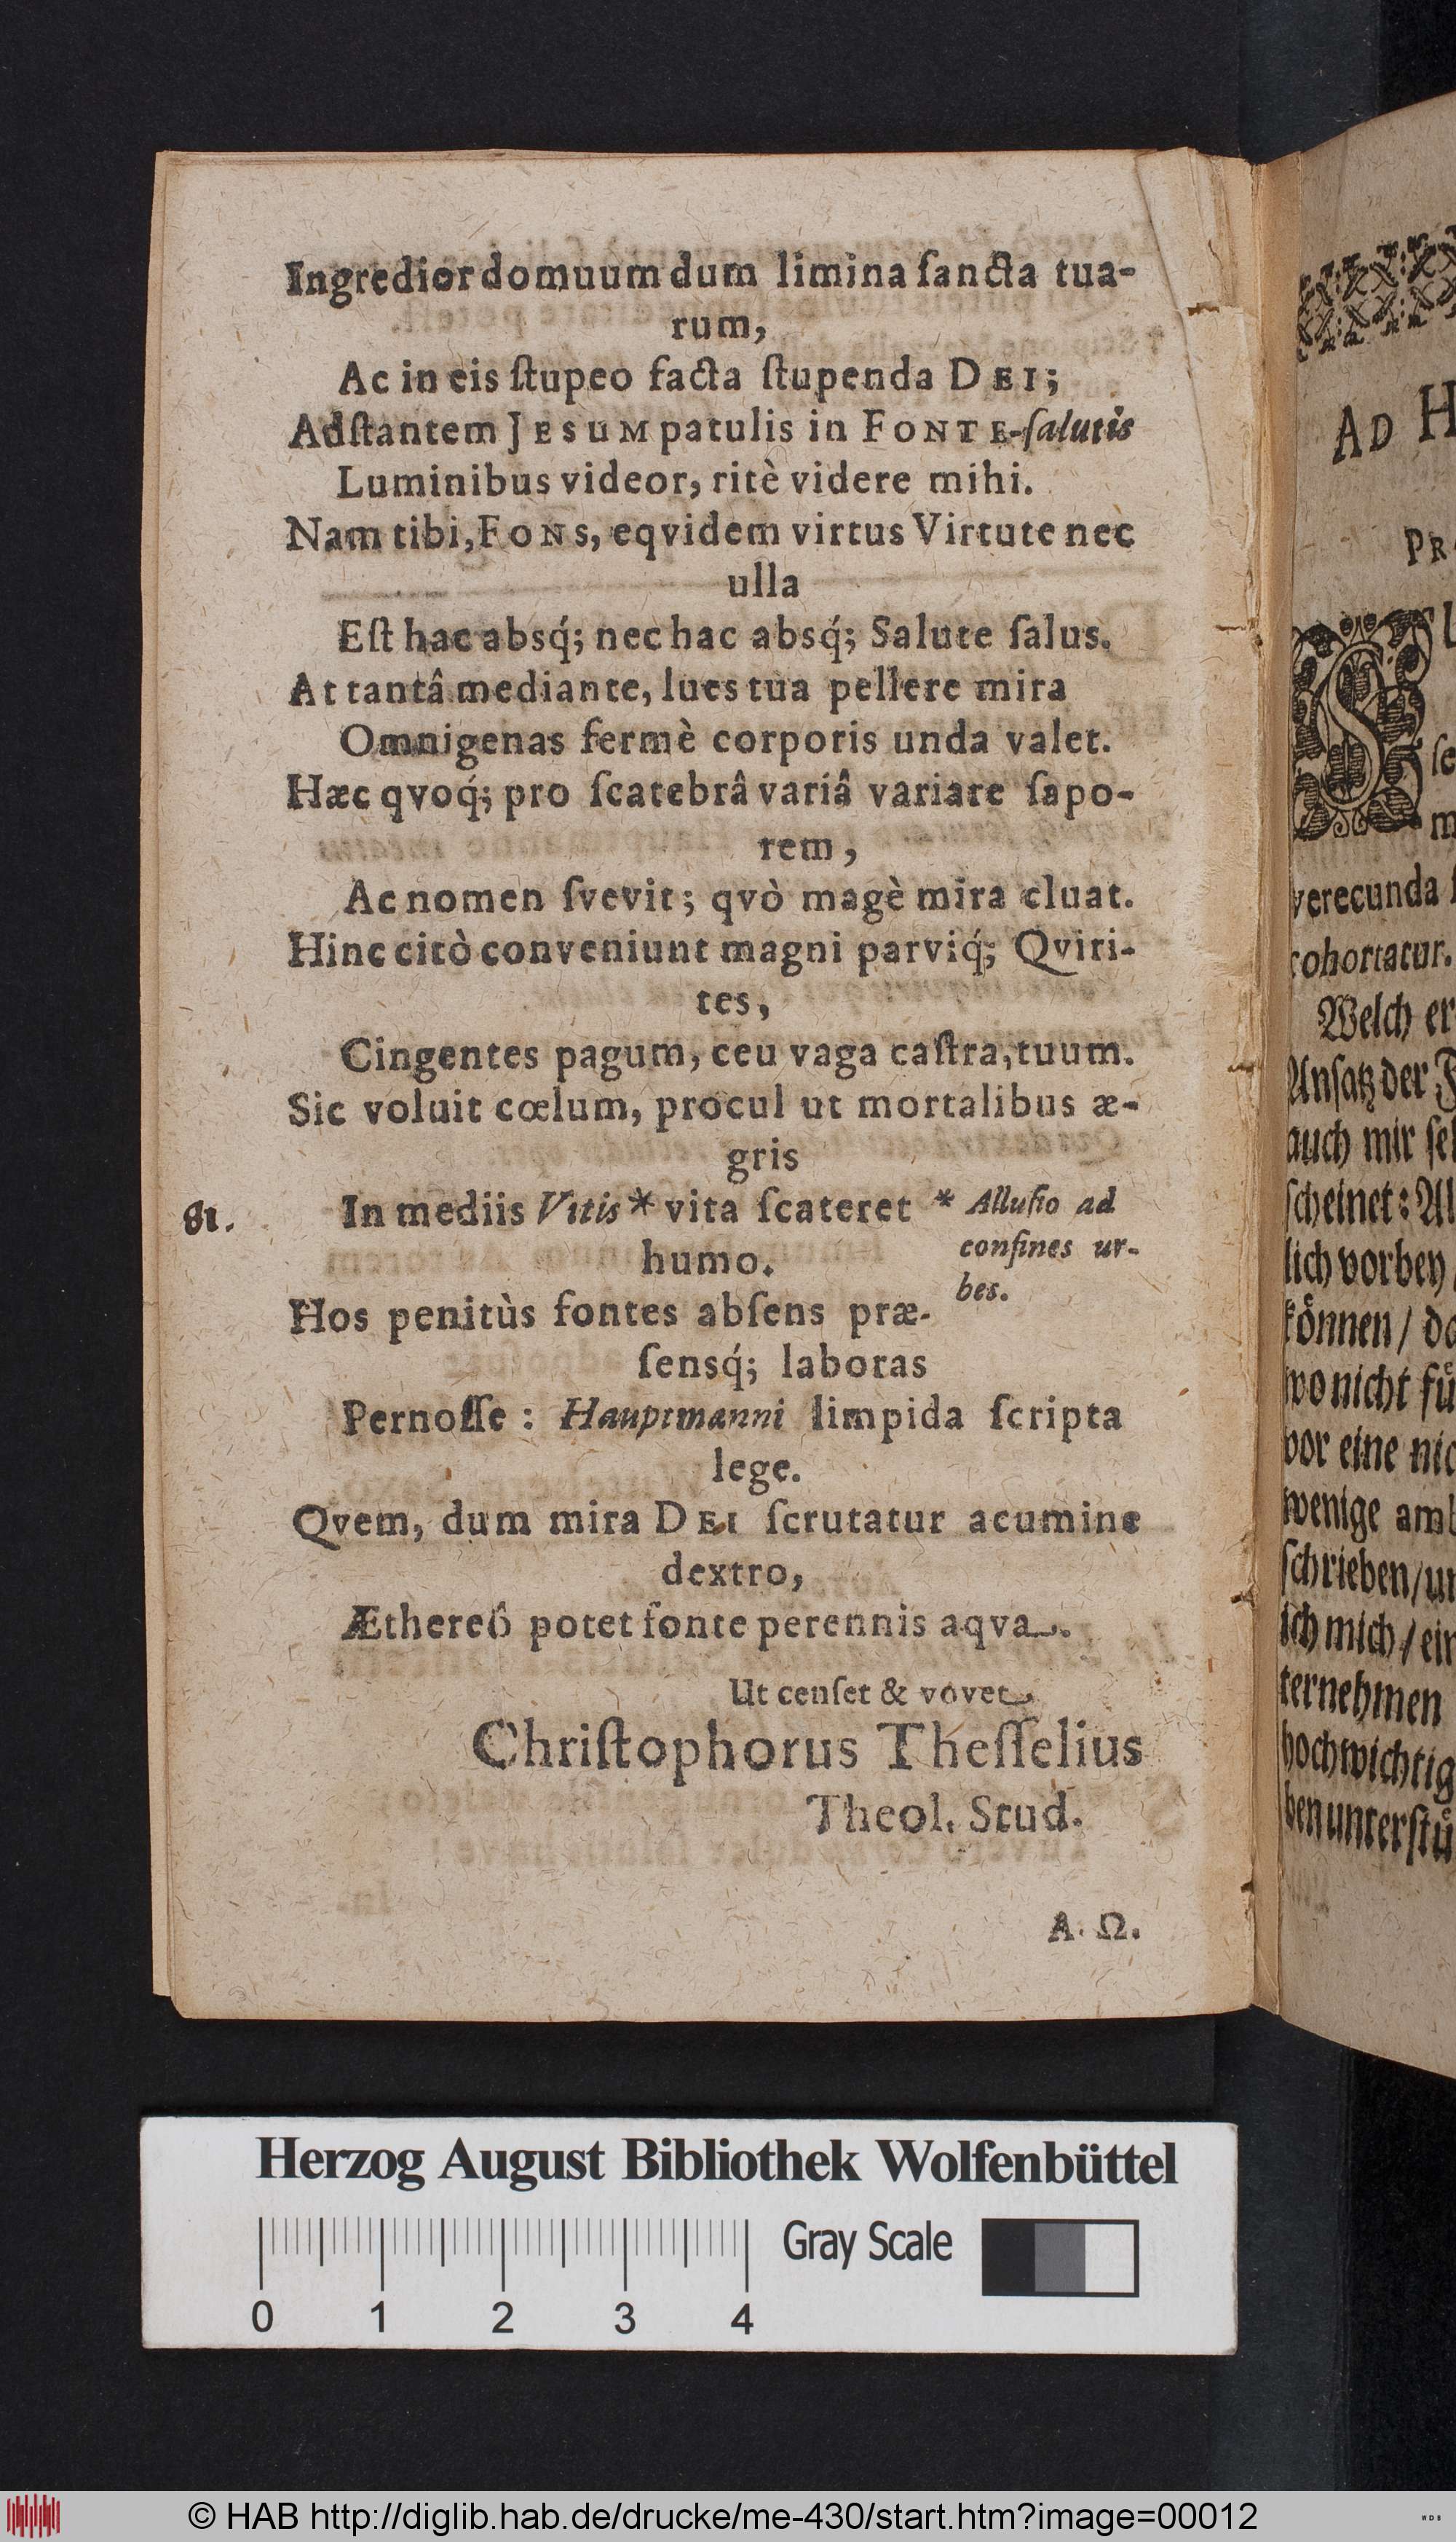 Ingredior domuum dum limina ſancta tua-
rum,
Ac in eis ſtupeo facta ſtupenda DEI;
Adſtantem JESUM patulis in FONTE-ſalutis
Luminibus videor, ritè videre mihi.
Nam tibi, FONS, eqvidem virtus Virtute nec
ulla
Eſt hac absq́; nec hac absq́; Salute ſalus.
At tantâ mediante, lues tua pellere mira
Omnigenas fermè corporis unda valet.
Hæc qvoq́; pro ſcatebrâ variâ variare ſapo-
rem,
Ac nomen ſvevit; qvò magè mira cluat.
Hinc citò conveniunt magni parviq́; Qviri-
tes,
Cingentes pagum, ceu vaga caſtra, tuum.
Sic voluit cœlum, procul ut mortalibus æ-
gris
81.
In mediis Vitis* vita ſcateret
humo.
* Alluſio ad
confines ur-
bes.
Hos penitùs fontes abſens præ-
ſensq́; laboras
Pernoſſe: Hauptmanni limpida ſcripta
lege.
Qvem, dum mira DEI ſcrutatur acumine
dextro,
Æthereô potet fonte perennis aqva.
Ut cenſet & vovet
Chriſtophorus Theſſelius
Theol. Stud.
A. Ω.
AD H
PR
ſe
m
verecunda
cohortatur.
Welch er
Anſatz der
auch mir ſel
ſcheinet: Al
lich vorbey
können / da
wo nicht fü
vor eine nic
wenige amb
ſchrieben / un
ich mich / ein
ternehmen
hochwichtig
ben unterſtü
Herzog August Bibliothek Wolfenbüttel
Gray Scale
0 1 2 3 4
© HAB http://diglib.hab.de/drucke/me-430/start.htm?image=00012
WDB